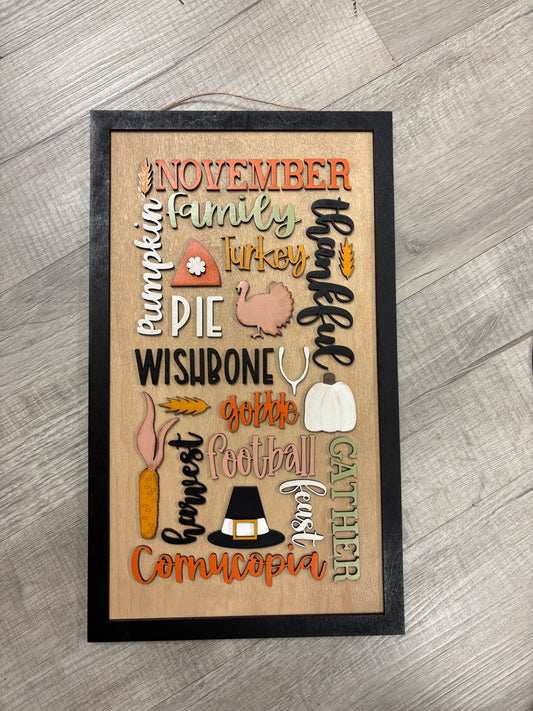 NOVEMBER
Family
pumpkin
Turkey
thankful
PIE
WISHBONE
gobble
football
harvest
feast
GATHER
Cornucopia